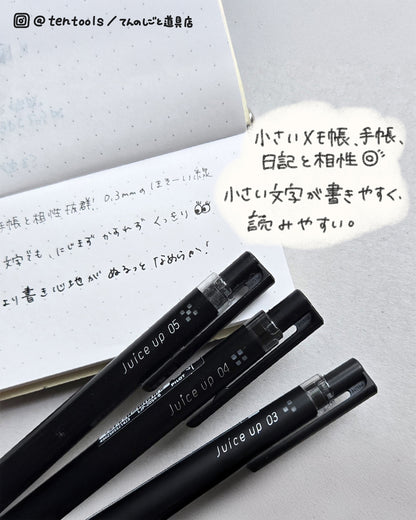 @tentools/てんのしごと道具店
小さいメモ帳、手帳、
日記と相性◎
小さい文字が書きやすく、
読みやすい。
手帳と相性抜群! 0.3mmのほそーい線
文字でも、にじまず かすれず くっきり
より書き心地が ぬるっと「なめらか!
Juice up 05
Juice up 04
PILOT
Juice up 03